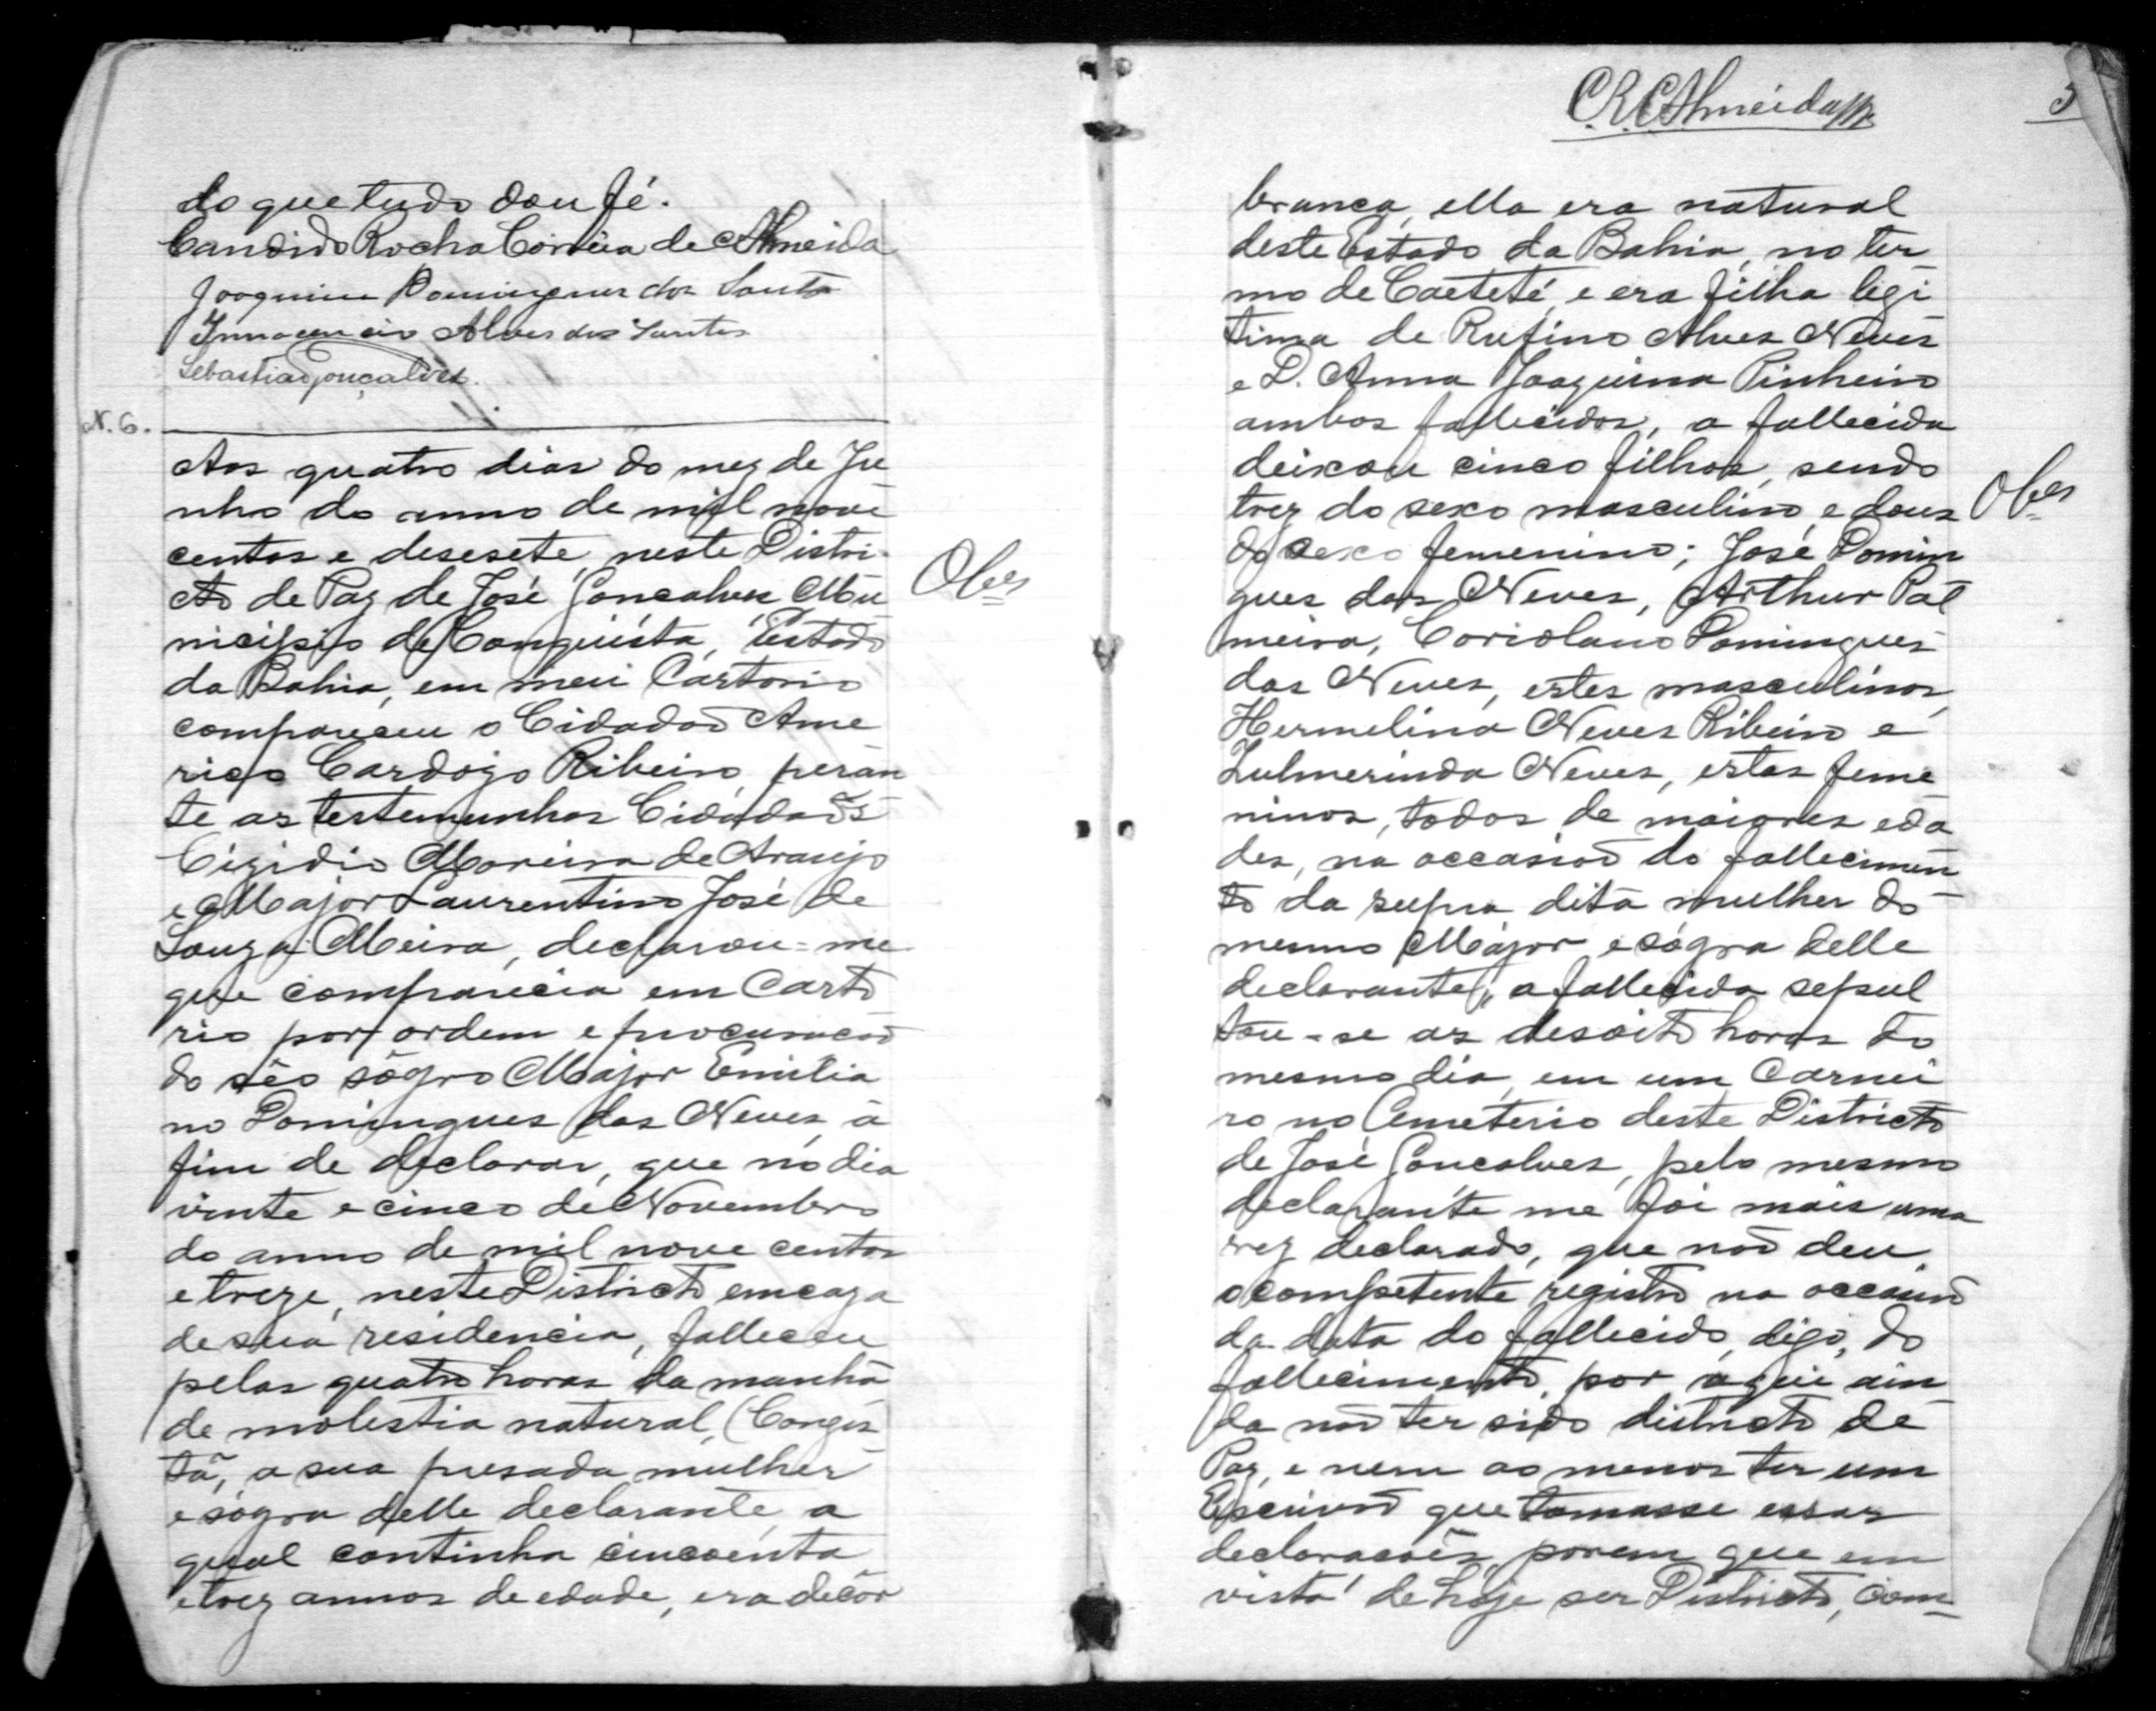 do que tudo dou fé.
Candido Rocha Corrêia de Almeida
Joaquim Domingues dos Santos
Innocencio Alves dos Santos
Sebastião Gonçalves.
N. 6.
Aos quatro dias do mez de Ju
nho do anno de mil nove
centos e desesete, neste Distri-
cto de Paz de José Gonçalves Mu
nicipio de Conquista, Estado
da Bahia, em meu Cartorio
compareceu o Cidadão Ame
rico Cardozo Ribeiro, peran
te as testemunhas Cidadãos
Cizidio Moreira de Araujo
e Major Laurentino José de
Souza Meira, declarou-me
que comparecia em Carto
rio por ordem e procuração
do sêo sôgro Major Emilia
no Domingues das Neves, a
fim de declarar, que no dia
vinte e cinco de Novembro
do anno de mil nove centos
e treze, neste Districto em caza
de sua residencia, falleceu
pelas quatro horas da manhã
de molestia natural, (Conges
tã, a sua presada mulher
e sógra delle declarante, a
qual continha cincoenta
e trez annos de edade, era de côr
C.R.C.Almeida
5
branca, ella era natural
deste Estado da Bahia, no ter
mo de Caeteté, e era filha legi
tima de Rufino Alves Neves
e D. Anna Joaquina Pinheiro
ambos fallecidos, a fallecida
deixou cinco filhos, sendo
trez do sexo masculino, e dous
do sexo femenino; José Domin
gues das Neves, Arthur Pal
meira, Coriolano Domingues
das Neves, estes masculinos,
Hermelina Neves Ribeiro e
Zulmerinda Neves, estas feme
ninos, todos de maiores eda
des, na occasião do fallecimen
to da supra dita mulher do
mesmo Major e sógra delle
declarante, a fallecida sepul
tou-se as desoito horas do
mesmo dia, em um Carnei
ro no Cemeterio deste Districto
de José Gonçalves, pelo mesmo
declarante me foi mais uma
vez declarado, que não deu
o competente registro na occasião
da data do fallecido, digo, do
fallecimento, por aqui ain
da não ter sido districto de
Paz, e nem ao menos ter um
Escrivão que tomasse essas
declarações, porem que em
vista de hoje ser Districto, com-